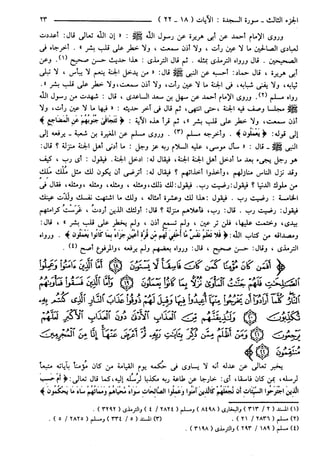 الجزء الثالث - سورة السجدة : الآيات ( ١٨ - ٢٢ ) ٢٣
وروى الإمام أحمد عن أبي هريرة عن رسول الله ﷺ : « إن الله تعالى قال : أعددت
لعبادي الصالحين ما لا عين رأت ، ولا أذن سمعت ، ولا خطر على قلب بشر » . أخرجاه في
الصحيحين . قال ورواه الترمذي بمثله . ثم قال الترمذي : هذا حديث حسن صحيح (١) . وعن
أبي هريرة ، قال حماد : أحسبه عن النبي ﷺ قال : « من يدخل الجنة ينعم لا يبأس ، لا تبلى
ثيابه ، ولا يفنى شبابه ، في الجنة ما لا عين رأت ، ولا أذن سمعت ، ولا خطر على قلب بشر » .
رواه مسلم (٢) . وروى الإمام أحمد عن سهل بن سعد الساعدي ، قال : شهدت من رسول الله
ﷺ مجلسا وصف فيه الجنة ، حتى انتهى ، ثم قال في آخر حديثه : « فيها ما لا عين رأت ، ولا
أذن سمعت ، ولا خطر على قلب بشر » ، ثم قرأ هذه الآية : ﴿ تَتَجَافَىٰ جُنُوبُهُمْ عَنِ الْمَضَاجِعِ ﴾
إلى قوله : ﴿ يَعْمَلُونَ ﴾ . وأخرجه مسلم (٣) . وروى مسلم عن المغيرة بن شعبة - يرفعه إلى
النبي ﷺ - قال : « سأل موسى ، عليه السلام ربه عز وجل : ما أدنى أهل الجنة منزلة ؟ قال :
هو رجل يجيء بعد ما أدخل أهل الجنة الجنة ، فيقال له : ادخل الجنة . فيقول : أي رب ، كيف
وقد نزل الناس منازلهم ، وأخذوا أخذاتهم ؟ فيقال له : أترضى أن يكون لك مثل مُلْك مَلِك
من ملوك الدنيا ؟ فيقول : رضيت رب . فيقول : لك ذلك ، ومثله ، ومثله ، ومثله ، ومثله ، فقال في
الخامسة : رضيت رب . فيقول : هذا لك وعشرة أمثاله ، ولك ما اشتهت نفسك ولذت عينك
فيقول : رضيت رب . قال : رب ، فأعلاهم منزلة ؟ قال : أولئك الذين أردتُ ، غرست كرامتهم
بيدي ، وختمت عليها ، فلن تر عين ، ولم تسمع أذن ، ولم يخطر على قلب بشر » ، قال :
ومصداقه من كتاب الله : ﴿ فَلَا تَعْلَمُ نَفْسٌ مَا أُخْفِيَ لَهُمْ مِنْ قُرَّةِ أَعْيُنٍ جَزَاءً بِمَا كَانُوا يَعْمَلُونَ ﴾ . ورواه
الترمذي ، وقال : حسن صحيح ، قال : ورواه بعضهم ولم يرفعه ، والمرفوع أصح (٤) .
أَفَمَن كَانَ مُؤْمِنًا كَمَن كَانَ فَاسِقًا لَّا يَسْتَوُونَ ﴿١٨﴾ أَمَّا الَّذِينَ آمَنُوا وَعَمِلُوا
الصَّالِحَاتِ فَلَهُمْ جَنَّاتُ الْمَأْوَىٰ نُزُلًا بِمَا كَانُوا يَعْمَلُونَ ﴿١٩﴾ وَأَمَّا الَّذِينَ فَسَقُوا
فَمَأْوَاهُمُ النَّارُ كُلَّمَا أَرَادُوا أَن يَخْرُجُوا مِنْهَا أُعِيدُوا فِيهَا وَقِيلَ لَهُمْ ذُوقُوا عَذَابَ النَّارِ الَّذِي كُنتُم بِهِ
تُكَذِّبُونَ ﴿٢٠﴾ وَلَنُذِيقَنَّهُم مِّنَ الْعَذَابِ الْأَدْنَىٰ دُونَ الْعَذَابِ الْأَكْبَرِ لَعَلَّهُمْ
يَرْجِعُونَ ﴿٢١﴾ وَمَنْ أَظْلَمُ مِمَّن ذُكِّرَ بِآيَاتِ رَبِّهِ ثُمَّ أَعْرَضَ عَنْهَا إِنَّا مِنَ الْمُجْرِمِينَ
مُنتَقِمُونَ ﴿٢٢﴾
يخبر تعالى عن عدله أنه لا يساوي في حكمه يوم القيامة من كان مؤمنا بآياته متبعاً
لرسله ، بمن كان فاسقا ، أي : خارجا عن طاعة ربه مكذبا رسله إليه ، كما قال تعالى : ﴿ أَمْ حَسِبَ
الَّذِينَ اجْتَرَحُوا السَّيِّئَاتِ أَنْ نَجْعَلَهُمْ كَالَّذِينَ آمَنُوا وَعَمِلُوا الصَّالِحَاتِ سَوَاءً مَحْيَاهُمْ وَمَمَاتُهُمْ سَاءَ مَا يَحْكُمُونَ ﴾
(١) المسند ( ٢ / ٣١٣ ) والبخاري ( ٨٤٩٨ ) ومسلم ( ٢٨٢٤ / ٤ ) والترمذي ( ٣٢٩٢ ) .
(٢) مسلم ( ٢٨٣٦ / ٢١ ) . (٣) المسند ( ٥ / ٣٣٤ ) ومسلم ( ٢٨٢٥ / ٥ ) .
(٤) مسلم ( ١٨٩ / ٢٩٣ ) والترمذي ( ٣١٩٨ ) .